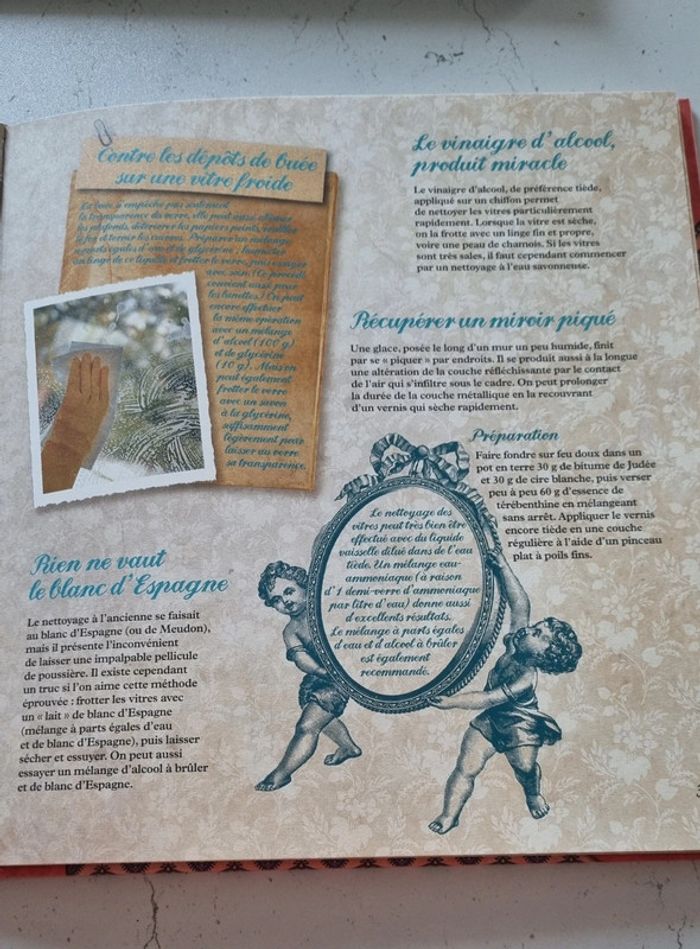 Contre les dépôts de buée
sur une vitre froide
La buée n'empêche pas seulement
la transparence du verre, elle peut aussi abîmer
les plafonds, détériorer les papiers peints, rouiller
le fer et ternir les cuivres. Préparer un mélange
à parts égales d'eau et de glycérine ; humecter
un linge de ce liquide et frotter le verre, puis essuyer
avec soin. (Ce procédé
convient aussi pour
les lunettes.) On peut
encore effectuer
la même opération
avec un mélange
d'alcool (100 g)
et de glycérine
(10 g). Mais on
peut également
frotter le verre
avec un savon
à la glycérine,
suffisamment
légèrement pour
laisser au verre
sa transparence.
Rien ne vaut
le blanc d'Espagne
Le nettoyage à l'ancienne se faisait
au blanc d'Espagne (ou de Meudon),
mais il présente l'inconvénient
de laisser une impalpable pellicule
de poussière. Il existe cependant
un truc si l'on aime cette méthode
éprouvée : frotter les vitres avec
un « lait » de blanc d'Espagne
(mélange à parts égales d'eau
et de blanc d'Espagne), puis laisser
sécher et essuyer. On peut aussi
essayer un mélange d'alcool à brûler
et de blanc d'Espagne.
Le vinaigre d'alcool,
produit miracle
Le vinaigre d'alcool, de préférence tiède,
appliqué sur un chiffon permet
de nettoyer les vitres particulièrement
rapidement. Lorsque la vitre est sèche,
on la frotte avec un linge fin et propre,
voire une peau de chamois. Si les vitres
sont très sales, il faut cependant commencer
par un nettoyage à l'eau savonneuse.
Récupérer un miroir piqué
Une glace, posée le long d'un mur un peu humide, finit
par se « piquer » par endroits. Il se produit aussi à la longue
une altération de la couche réfléchissante par le contact
de l'air qui s'infiltre sous le cadre. On peut prolonger
la durée de la couche métallique en la recouvrant
d'un vernis qui sèche rapidement.
Préparation
Faire fondre sur feu doux dans un
pot en terre 30 g de bitume de Judée
et 30 g de cire blanche, puis verser
peu à peu 60 g d'essence de
térébenthine en mélangeant
sans arrêt. Appliquer le vernis
encore tiède en une couche
régulière à l'aide d'un pinceau
plat à poils fins.
Le nettoyage des
vitres peut très bien être
effectué avec du liquide
vaisselle dilué dans de l'eau
tiède. Un mélange eau-
ammoniaque (à raison
d'1 demi-verre d'ammoniaque
par litre d'eau) donne aussi
d'excellents résultats.
Le mélange à parts égales
d'eau et d'alcool à brûler
est également
recommandé.